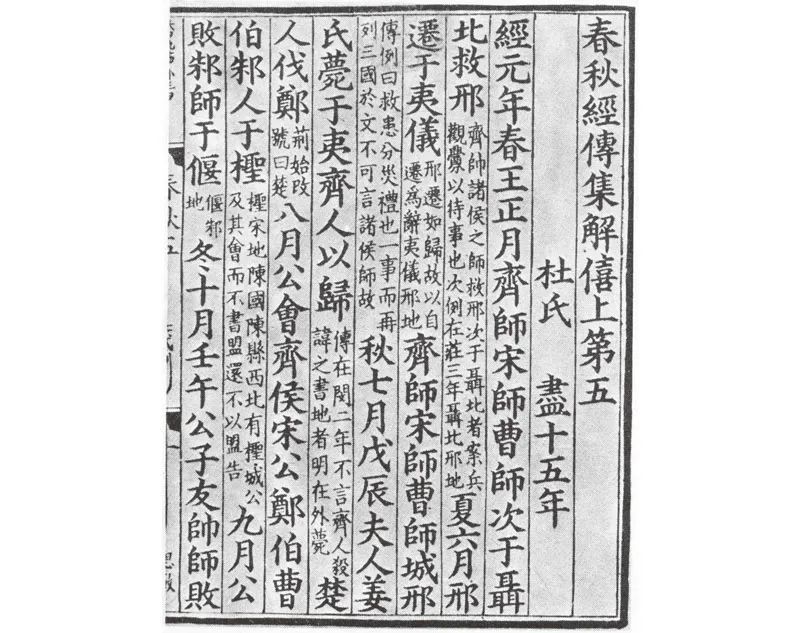 春秋經傳集解僖上第五
杜氏　盡十五年
經元年春王正月齊師宋師曹師次于聶
北救邢齊帥諸侯之師救邢次于聶北者案兵觀釁以待事也次例在莊三年聶北邢地夏六月邢
遷于夷儀邢遷如歸故以自遷爲辭夷儀邢地齊師宋師曹師城邢
傳例曰救患分災禮也一事而再列三國於文不可言諸侯師故秋七月戊辰夫人姜
氏薨于夷齊人以歸傳在閔二年不言齊人殺諱之書地者明在外薨楚
人伐鄭荊始改號曰楚八月公會齊侯宋公鄭伯曹
伯邾人于檉檉宋地陳國陳縣西北有檉城公及其會而不書盟還不以盟告九月公
敗邾師于偃偃邾地冬十月壬午公子友帥師敗
春秋五